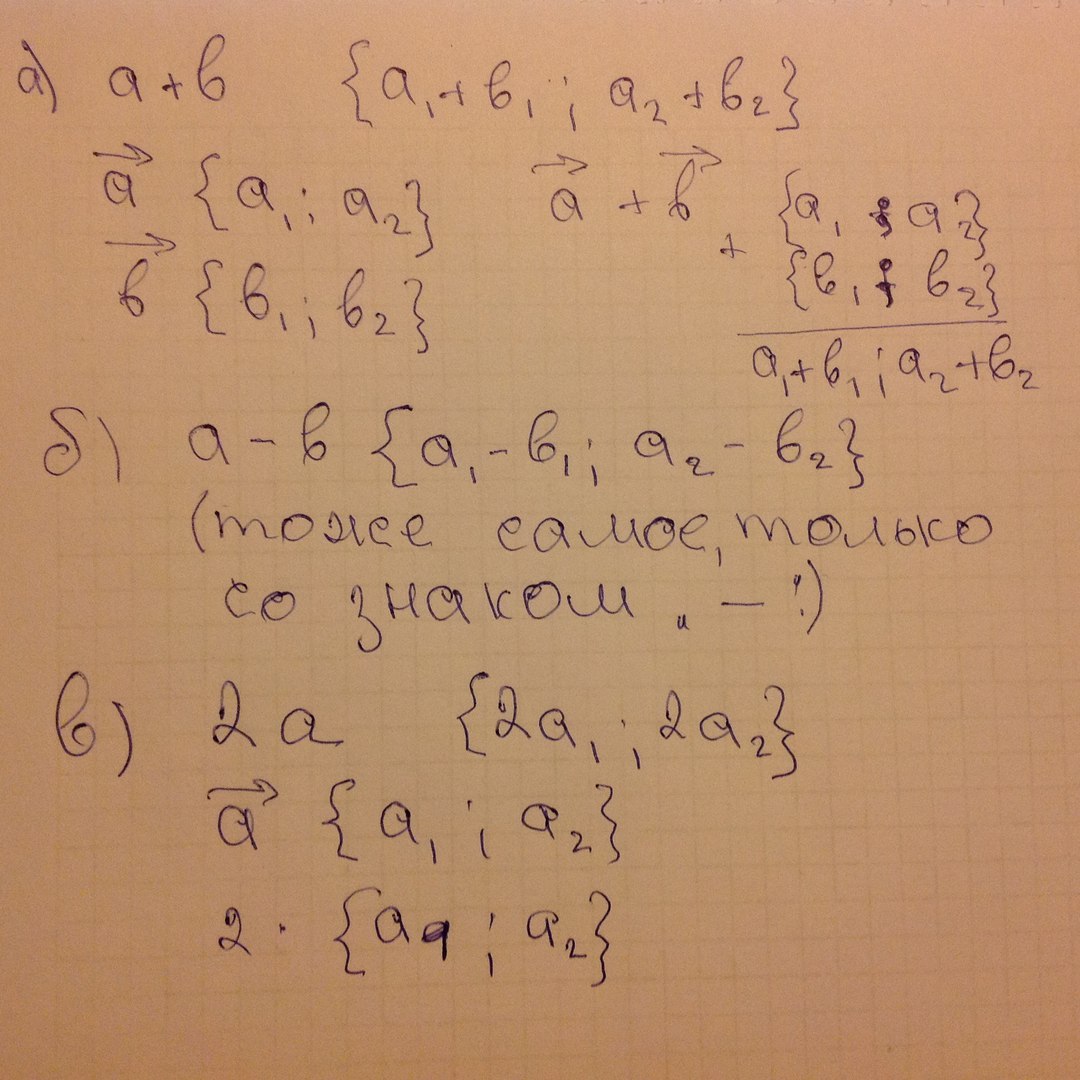 а) a+в {a₁+в₁; a₂+в₂}
a⃗ {a₁; a₂} a⃗ + в⃗ + {a₁ ; a₂}
в⃗ {в₁; в₂} {в₁ ; в₂}
a₁+в₁; a₂+в₂
б) a-в {a₁-в₁; a₂-в₂}
(тоже самое, только
со знаком „ – “!)
в) 2a {2a₁; 2a₂}
a⃗ {a₁; a₂}
2 · {a₁; a₂}